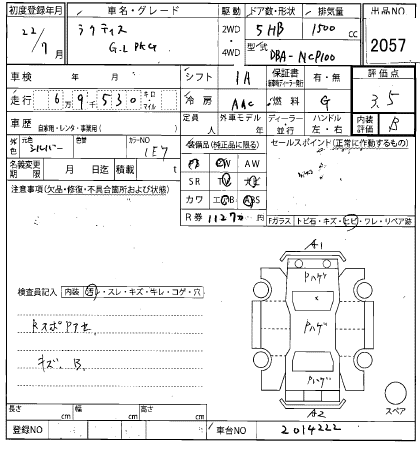 初度登録年月 車名・グレード 駆動 ドア数・形状 排気量 出品NO
22/7月 ラクティス G.L PKG 2WD・4WD 5HB 1500cc 2057
型式 DBA-NCP100
車検 年 月 シフト IA 保証書 有・無 評価点
走行 6万9千530 キロ マイル 冷房 AAC 燃料 G 3.5
車歴 自家用・レンタ・事業用( ) 定員 人 外車モデル 年 ディーラー・並行 ハンドル 左・右 内装評価 B
外色 元色 シルバー 色替 カラーNO 1E7 装備品(純正品に限る) セールスポイント(正常に作動するもの)
PS PW AW
名義変更期限 月 日迄 積載 t SR TV ナビ
注意事項(欠品・修復・不具合箇所および状態) カワ エアB ABS
R券 11270
Fガラス トビ石・キズ・ヒビ・ワレ・リペア跡
A1
Pハゲ
検査員記入 内装 汚・スレ・キズ・キレ・コゲ・穴
Pハゲ
キズ. B.
Pハゲ
A2
スペア
長さ cm 幅 cm 高さ cm
登録NO 車台NO 2014222